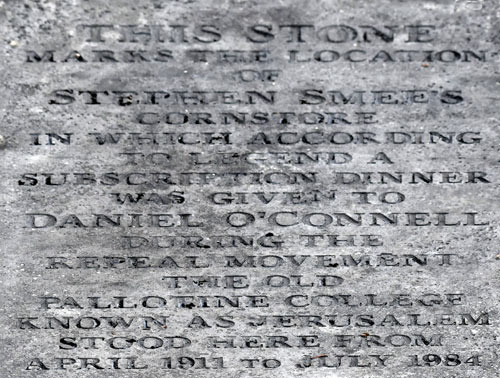 THIS STONE
MARKS THE LOCATION
OF
STEPHEN SMEE'S
CORNSTORE
IN WHICH ACCORDING
TO LEGEND A
SUBSCRIPTION DINNER
WAS GIVEN TO
DANIEL O'CONNELL
DURING THE
REPEAL MOVEMENT
THE OLD
PALLOTINE COLLEGE
KNOWN AS JERUSALEM
STOOD HERE FROM
APRIL 1911 TO JULY 1984